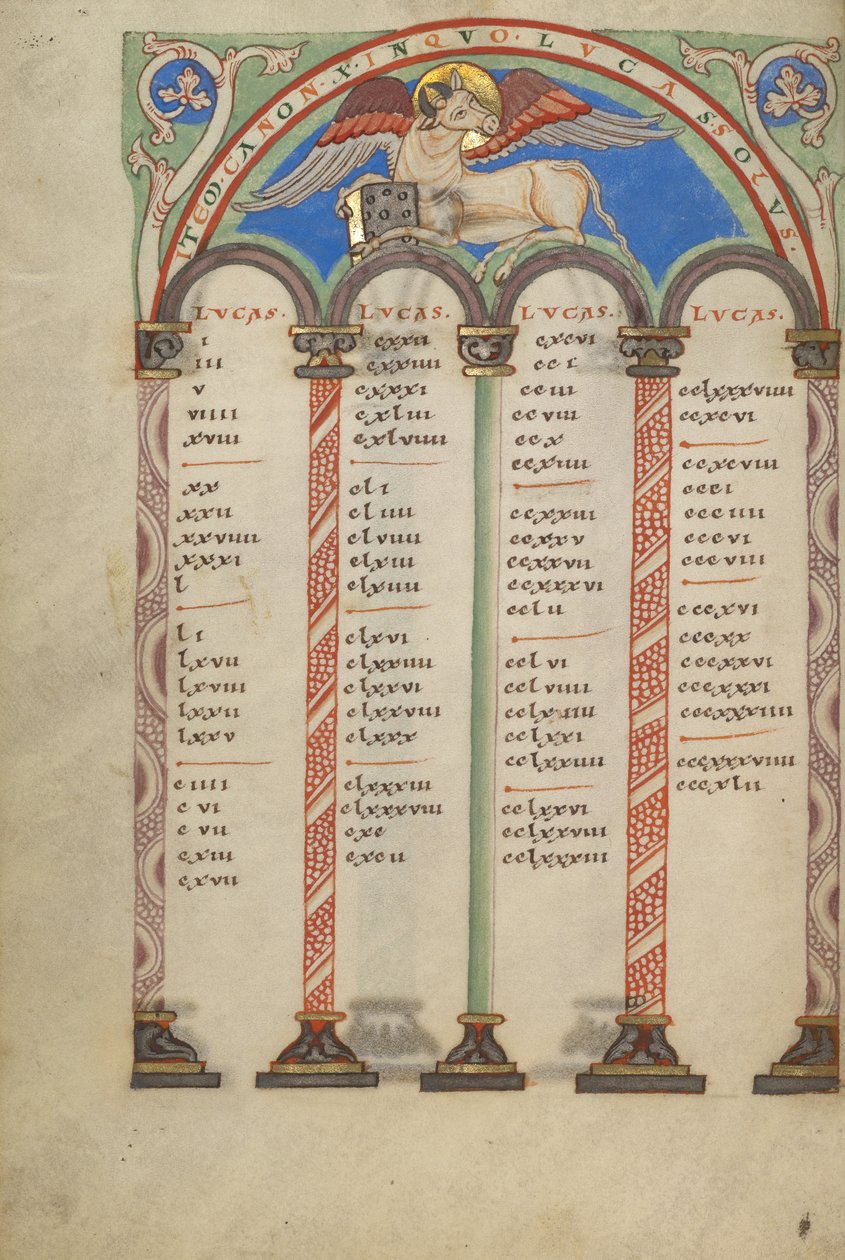 ITEM·CANON·X·INQVO·LVCASSOLVS·
LVCAS·
i
iii
v
viiii
xviii
xx
xxii
xxviiii
xxxi
l
li
lxvii
lxviii
lxxii
lxxv
ciiii
cvi
cvii
cxiii
cxvii
LVCAS·
cxxii
cxxiiii
cxxxi
cxliii
cxlviiii
cli
cliiii
clviiii
clxiii
clxiiii
clxvi
clxxiiii
clxxvi
clxxviii
clxxx
clxxxiii
clxxxviii
cxc
cxcii
LVCAS·
cxcvi
cci
cciii
ccviii
ccx
ccxiiii
ccxxiii
ccxxv
ccxxvii
ccxxxvi
cclii
cclvi
cclviiii
cclxxi
cclxxiiii
cclxxvi
cclxxviii
cclxxxiii
LVCAS·
cclxxxviiii
ccxcvi
ccxcviii
ccci
ccciiii
cccvi
cccviii
cccxvi
cccxx
cccxxvi
cccxxxi
cccxxxiiii
cccxxxviiii
cccxlii